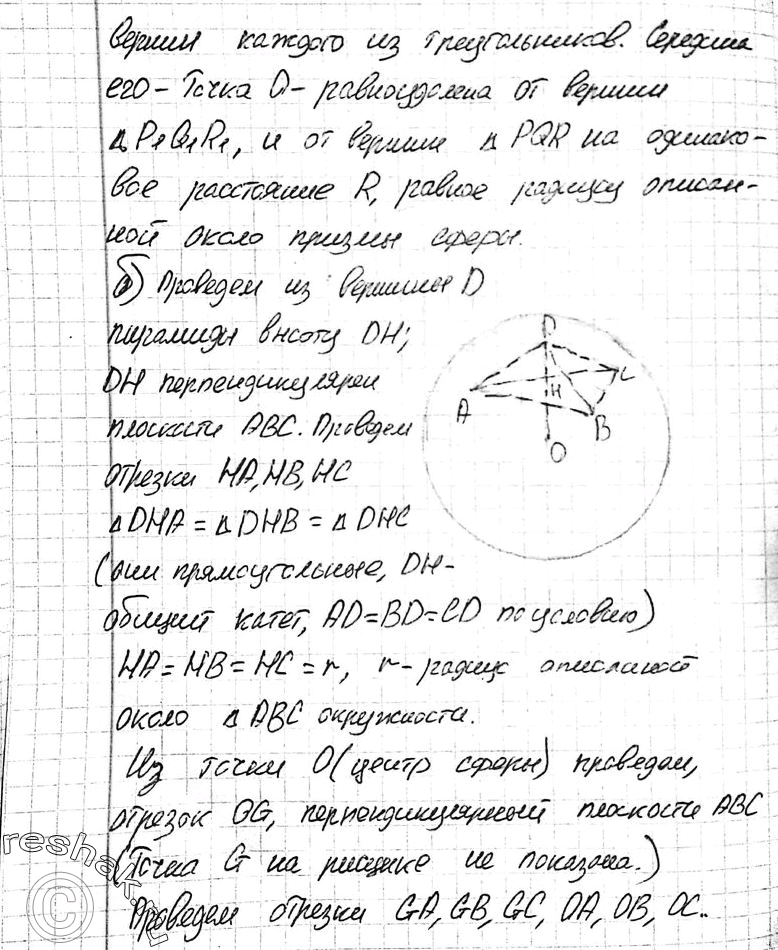 вершин каждого из треугольников. Середина
его - точка О - равноудалена от вершин
△P₁Q₁R₁, и от вершин △ PQR на одинако-
вое расстояние R, равное радиусу описан-
ной около призмы сферы.
б) Проведем из вершины D
пирамиды высоту DH;
DH перпендикулярен
плоскости ABC. Проведем
отрезки HA, HB, HC
△DHA = △DHB = △DHC
(они прямоугольные, DH-
общий катет, AD=BD=CD по условию)
HA = HB = HC = r, r - радиус описанной
около △ ABC окружности.
Из точки O (центр сферы) проведем,
отрезок OG, перпендикулярный плоскости ABC
(Точка G на рисунке не показана.)
Проведем отрезки GA, GB, GC, OA, OB, OC..
D
C
H
A
B
O
reshak.ru
©